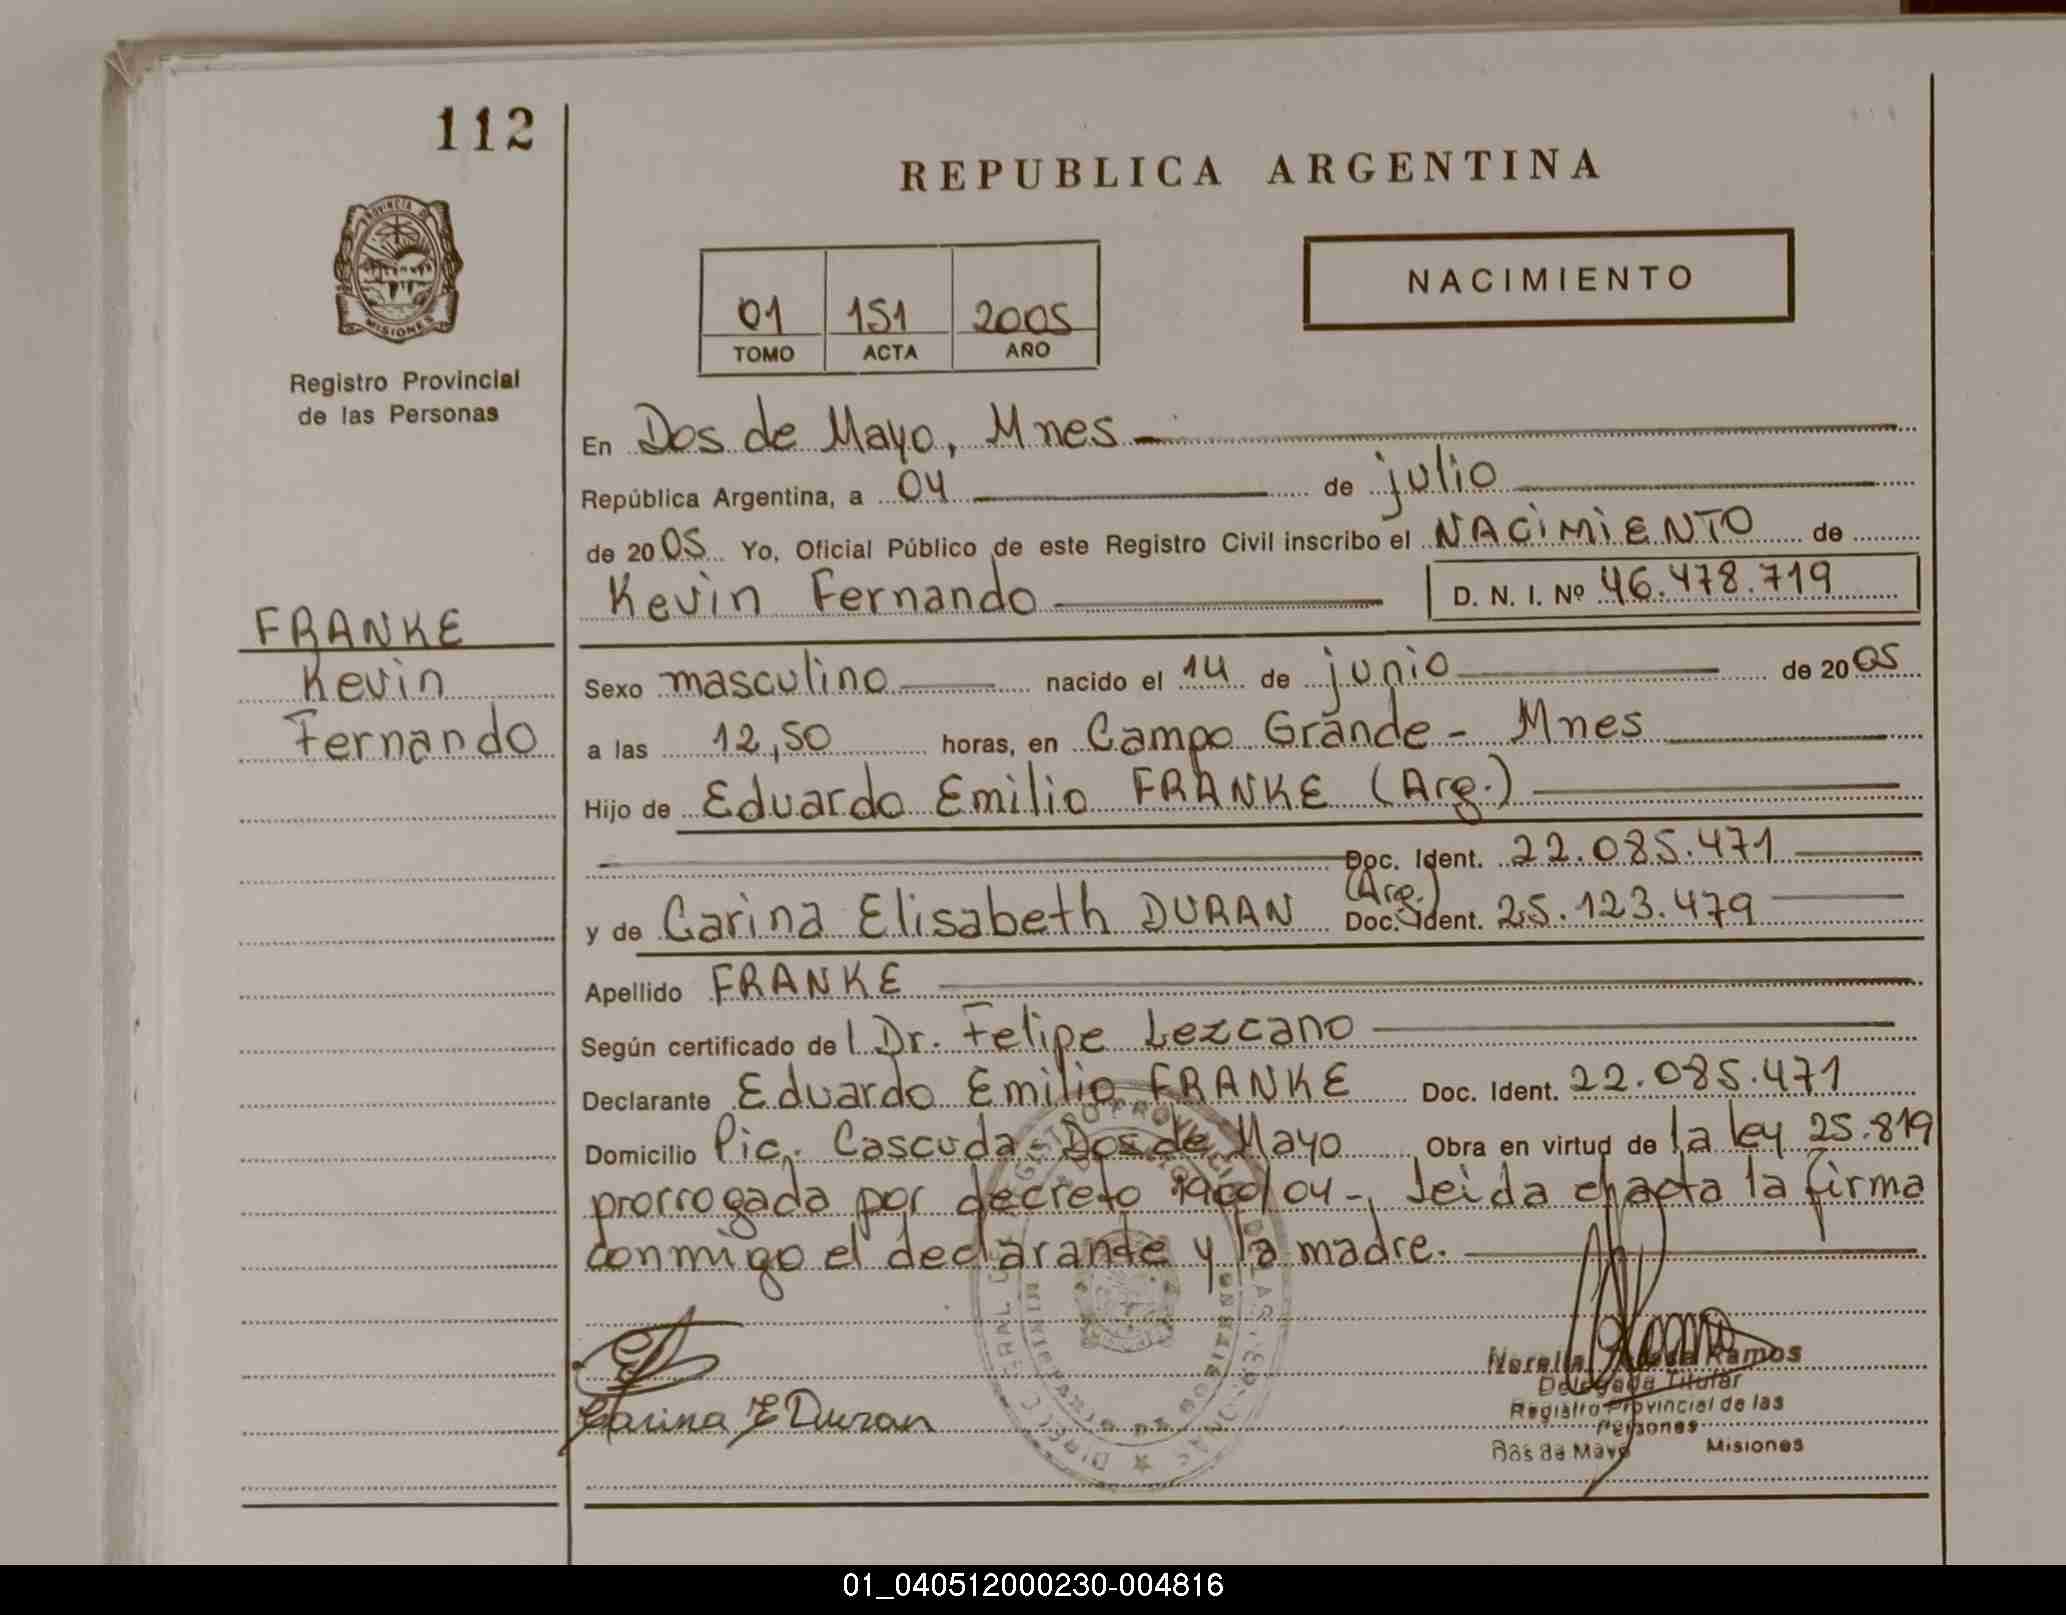 112
REPUBLICA ARGENTINA
PROVINCIA DE
MISIONES
Registro Provincial
de las Personas
NACIMIENTO
01 151 2005
TOMO ACTA AÑO
En Dos de Mayo, Mnes
República Argentina, a 04 de julio
de 2005 Yo, Oficial Público de este Registro Civil inscribo el NACIMIENTO de
Kevin Fernando D. N. I. Nº 46.478.719
FRANKE
Kevin
Fernando
Sexo masculino nacido el 14 de junio de 2005
a las 12,50 horas, en Campo Grande - Mnes
Hijo de Eduardo Emilio FRANKE (Arg.)
Doc. Ident. 22.085.471
y de Carina Elisabeth DURAN (Arg.) Doc. Ident. 25.123.479
Apellido FRANKE
Según certificado de l Dr. Felipe Lezcano
Declarante Eduardo Emilio FRANKE Doc. Ident. 22.085.471
Domicilio Pic. Cascuda - Dos de Mayo Obra en virtud de la ley 25.819
prorrogada por decreto 04 -, leida el acta la firma
conmigo el declarante y la madre.
Carina E Duran
Ramos
Delegada Titular
Registro Provincial de las
Personas
Dos de Mayo Misiones
01_040512000230-004816